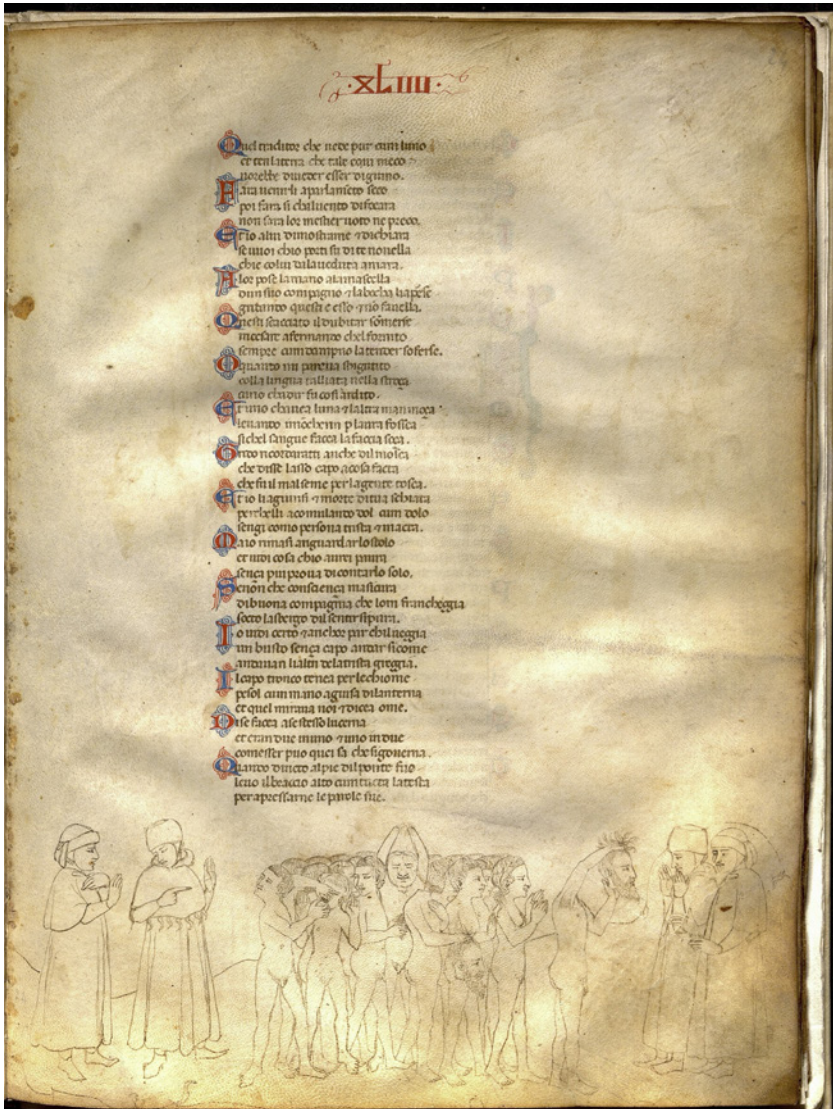 ·XLIIII·
Quel traditor che uede pur cum luno
et ten la terra che tale equi meco
uorebbe diueder esser digiuno.
Fara uenirli aparlameto seco
poi fara si chaluento difocara
non fara lor mestier uoto ne preco.
Et io alui dimostrame 7 dichiara
se uuoi chio porti su di te nouella
chie colui dalaueduta amara.
Alor pose lamano alamascella
dun suo compagno 7 labocha liaperse
gritando questi e esso 7 nō fauella.
Questi scacciato il dubitar sōmerse
incesare afermando chel fornito
sempre cum dampno latender soferse.
O quanto mi pareua sbigotito
colla lingua talliata nella stroça
curio chadir fu cosi ardito.
Et uno chauea luna 7 laltra man moça
leuando imōcherin p laura fossca
sichel sangue facea la faccia soça.
Grido ricordarati anche dil mosca
che disse lasso capo acosa facta
che fu il mal seme per lagente tosca.
Et io liagiunsi 7 morte di tua schiata
perchelli acomulando dol cum dolo
sengi como persona trista 7 macta.
Ma io rimasi anguardar lostolo
et uidi cosa chio aurei paura
sença piu proua di contarlo solo.
Senon che consciença masicura
di buona compagnia che lom francheggia
socto lasbergo dil sentirsi pura.
Io uidi certo 7 anchor par chil ueggia
un busto sença capo andar sicome
andauan lialtri delatrista greggia.
Il capo tronco tenea per lechiome
pesol cum mano aguisa dilanterna
et quel miraua noi 7 dicea ome.
Di se facea asestesso lucerna
et eran due inuno 7 uno in due
comesser puo quei sa che sigouerna.
Quando diricto alpie dil ponte fue
leuo il braccio alto cum tucta latesta
per apressarne le parole sue.